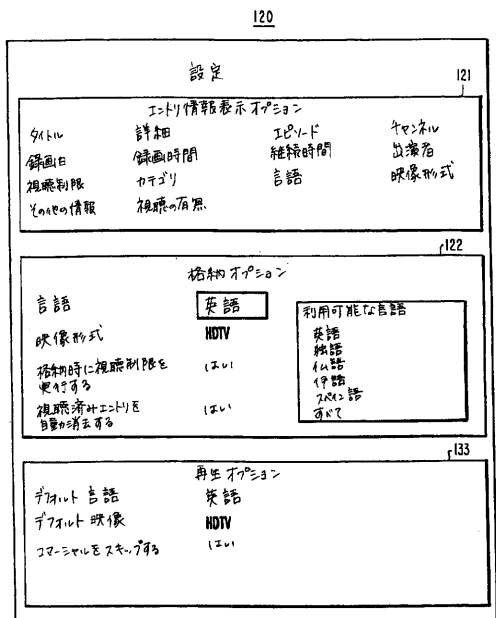 120
設定
121
エントリ情報表示オプション
タイトル 詳細 エピソード チャンネル
録画日 録画時間 継続時間 出演者
視聴制限 カテゴリ 言語 映像形式
その他の情報 視聴の有無
122
格納オプション
言語 英語
映像形式 HDTV
格納時に視聴制限を はい
実行する
視聴済みエントリを はい
自動消去する
利用可能な言語
英語
独語
仏語
伊語
スペイン語
すべて
133
再生オプション
デフォルト言語 英語
デフォルト映像 HDTV
コマーシャルをスキップする はい